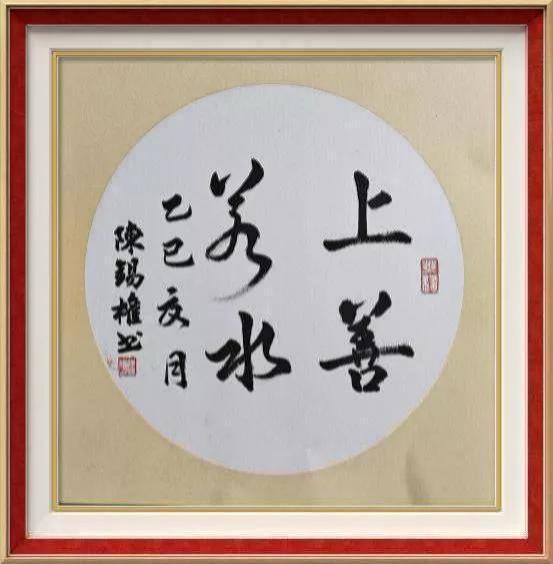 上善
若水
乙巳亥月
陳錫権书